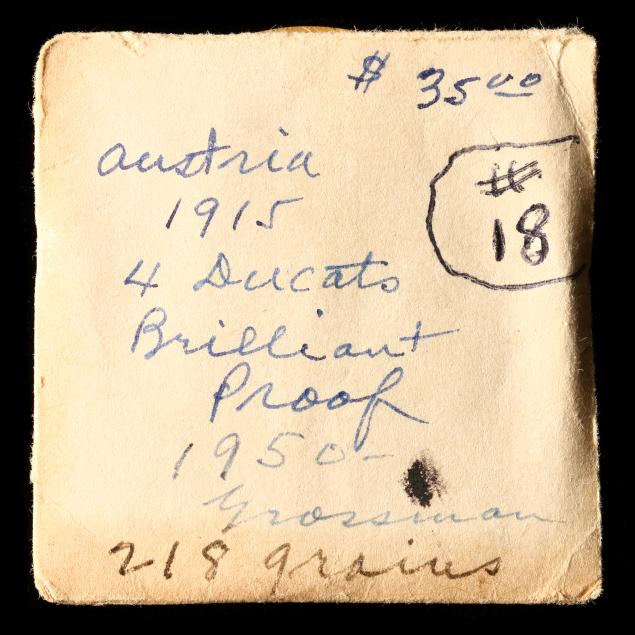 $ 35 00
Austria
#
1915
18
4 Ducats
Brilliant
Proof
1950-
Grossman
218 grains